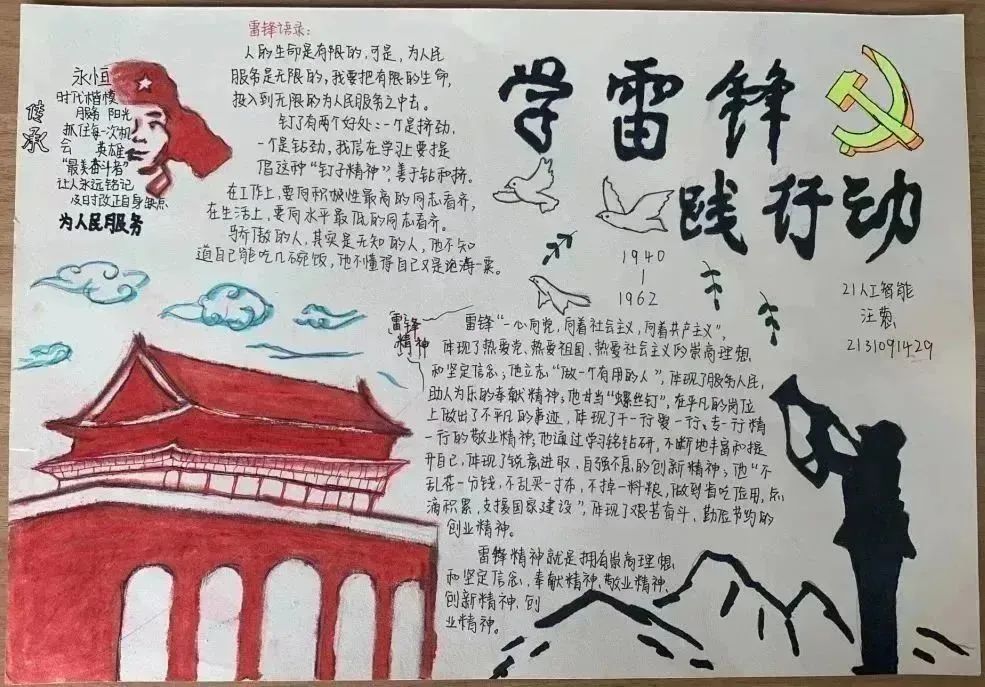 学雷锋
践行动
传承
永恒
时代楷模
服务 阳光
抓住每一次机
会 英雄
“最美奋斗者”
让人永远铭记
及时改正自身缺点
为人民服务
雷锋语录：
人的生命是有限的，可是，为人民
服务是无限的，我要把有限的生命，
投入到无限的为人民服务之中去。
钉子有两个好处：一个是挤劲，
一个是钻劲，我们在学习上要提
倡这种“钉子精神”，善于钻和挤。
在工作上，要向积极性最高的同志看齐，
在生活上，要向水平最低的同志看齐。
骄傲的人，其实是无知的人，他不知
道自己能吃几碗饭，他不懂得自己只是沧海一粟。
1940
|
1962
21人工智能
汪
2131091429
雷锋
精神
雷锋“一心向党，向着社会主义，向着共产主义”，
体现了热爱党、热爱祖国、热爱社会主义的崇高理想
和坚定信念；他立志“做一个有用的人”，体现了服务人民，
助人为乐的奉献精神；他甘当“螺丝钉”，在平凡的岗位
上做出了不平凡的事迹，体现了干一行爱一行、专一行精
一行的敬业精神；他通过学习铭钻研，不断地丰富和提
升自己，体现了锐意进取、自强不息的创新精神；他“不
乱花一分钱，不乱买一寸布，不掉一料粮，做到省吃俭用，点
滴积累，支援国家建设”，体现了艰苦奋斗、勤俭节约的
创业精神。
雷锋精神就是拥有崇高理想
和坚定信念，奉献精神、敬业精神、
创新精神、创
业精神。